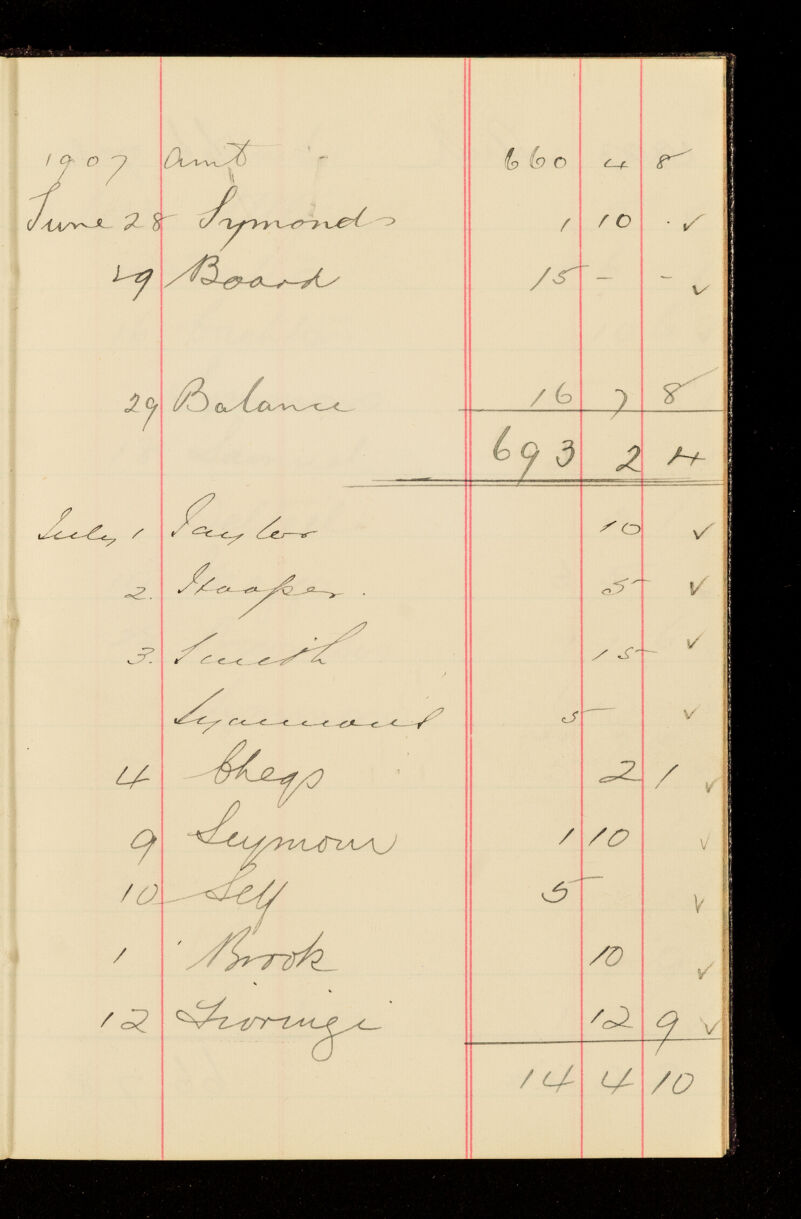 1907 Amt 660 4 8
June 28 Symonds 1 10 . ✓
29 Board 15 - - ✓
29 Balance 16 7 8
693 2 4
July 1 Taylor 10 ✓
2. Hooper. 5 ✓
3. Smith 15 ✓
5 ✓
4 Cheqs 2 1 ✓
9 Seymour 1 10 ✓
10 Self 5 ✓
1 Brook 10 ✓
12 12 9 ✓
14 4 10